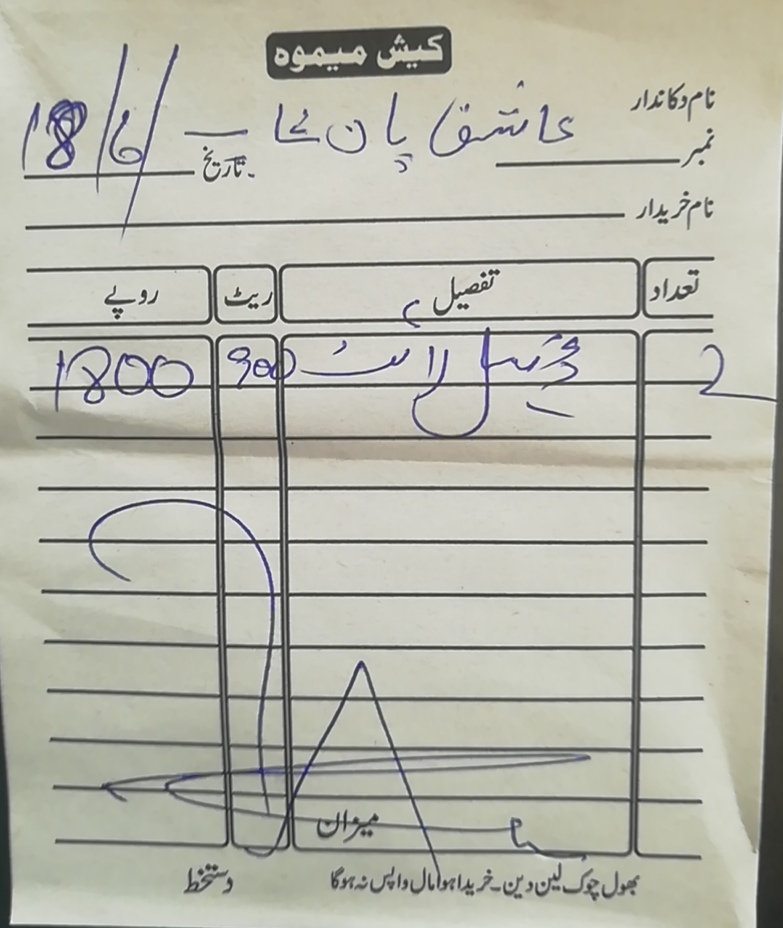 کیش میموہ
نام دکاندار عاشق پان
نمبر
تاریخ 18/6/
نام خریدار
تعداد تفصیل ریٹ روپے
2 لائٹ 900 1800
میزان
بھول چوک لین دین۔ خریدا ہوا مال واپس نہ ہوگا
دستخط